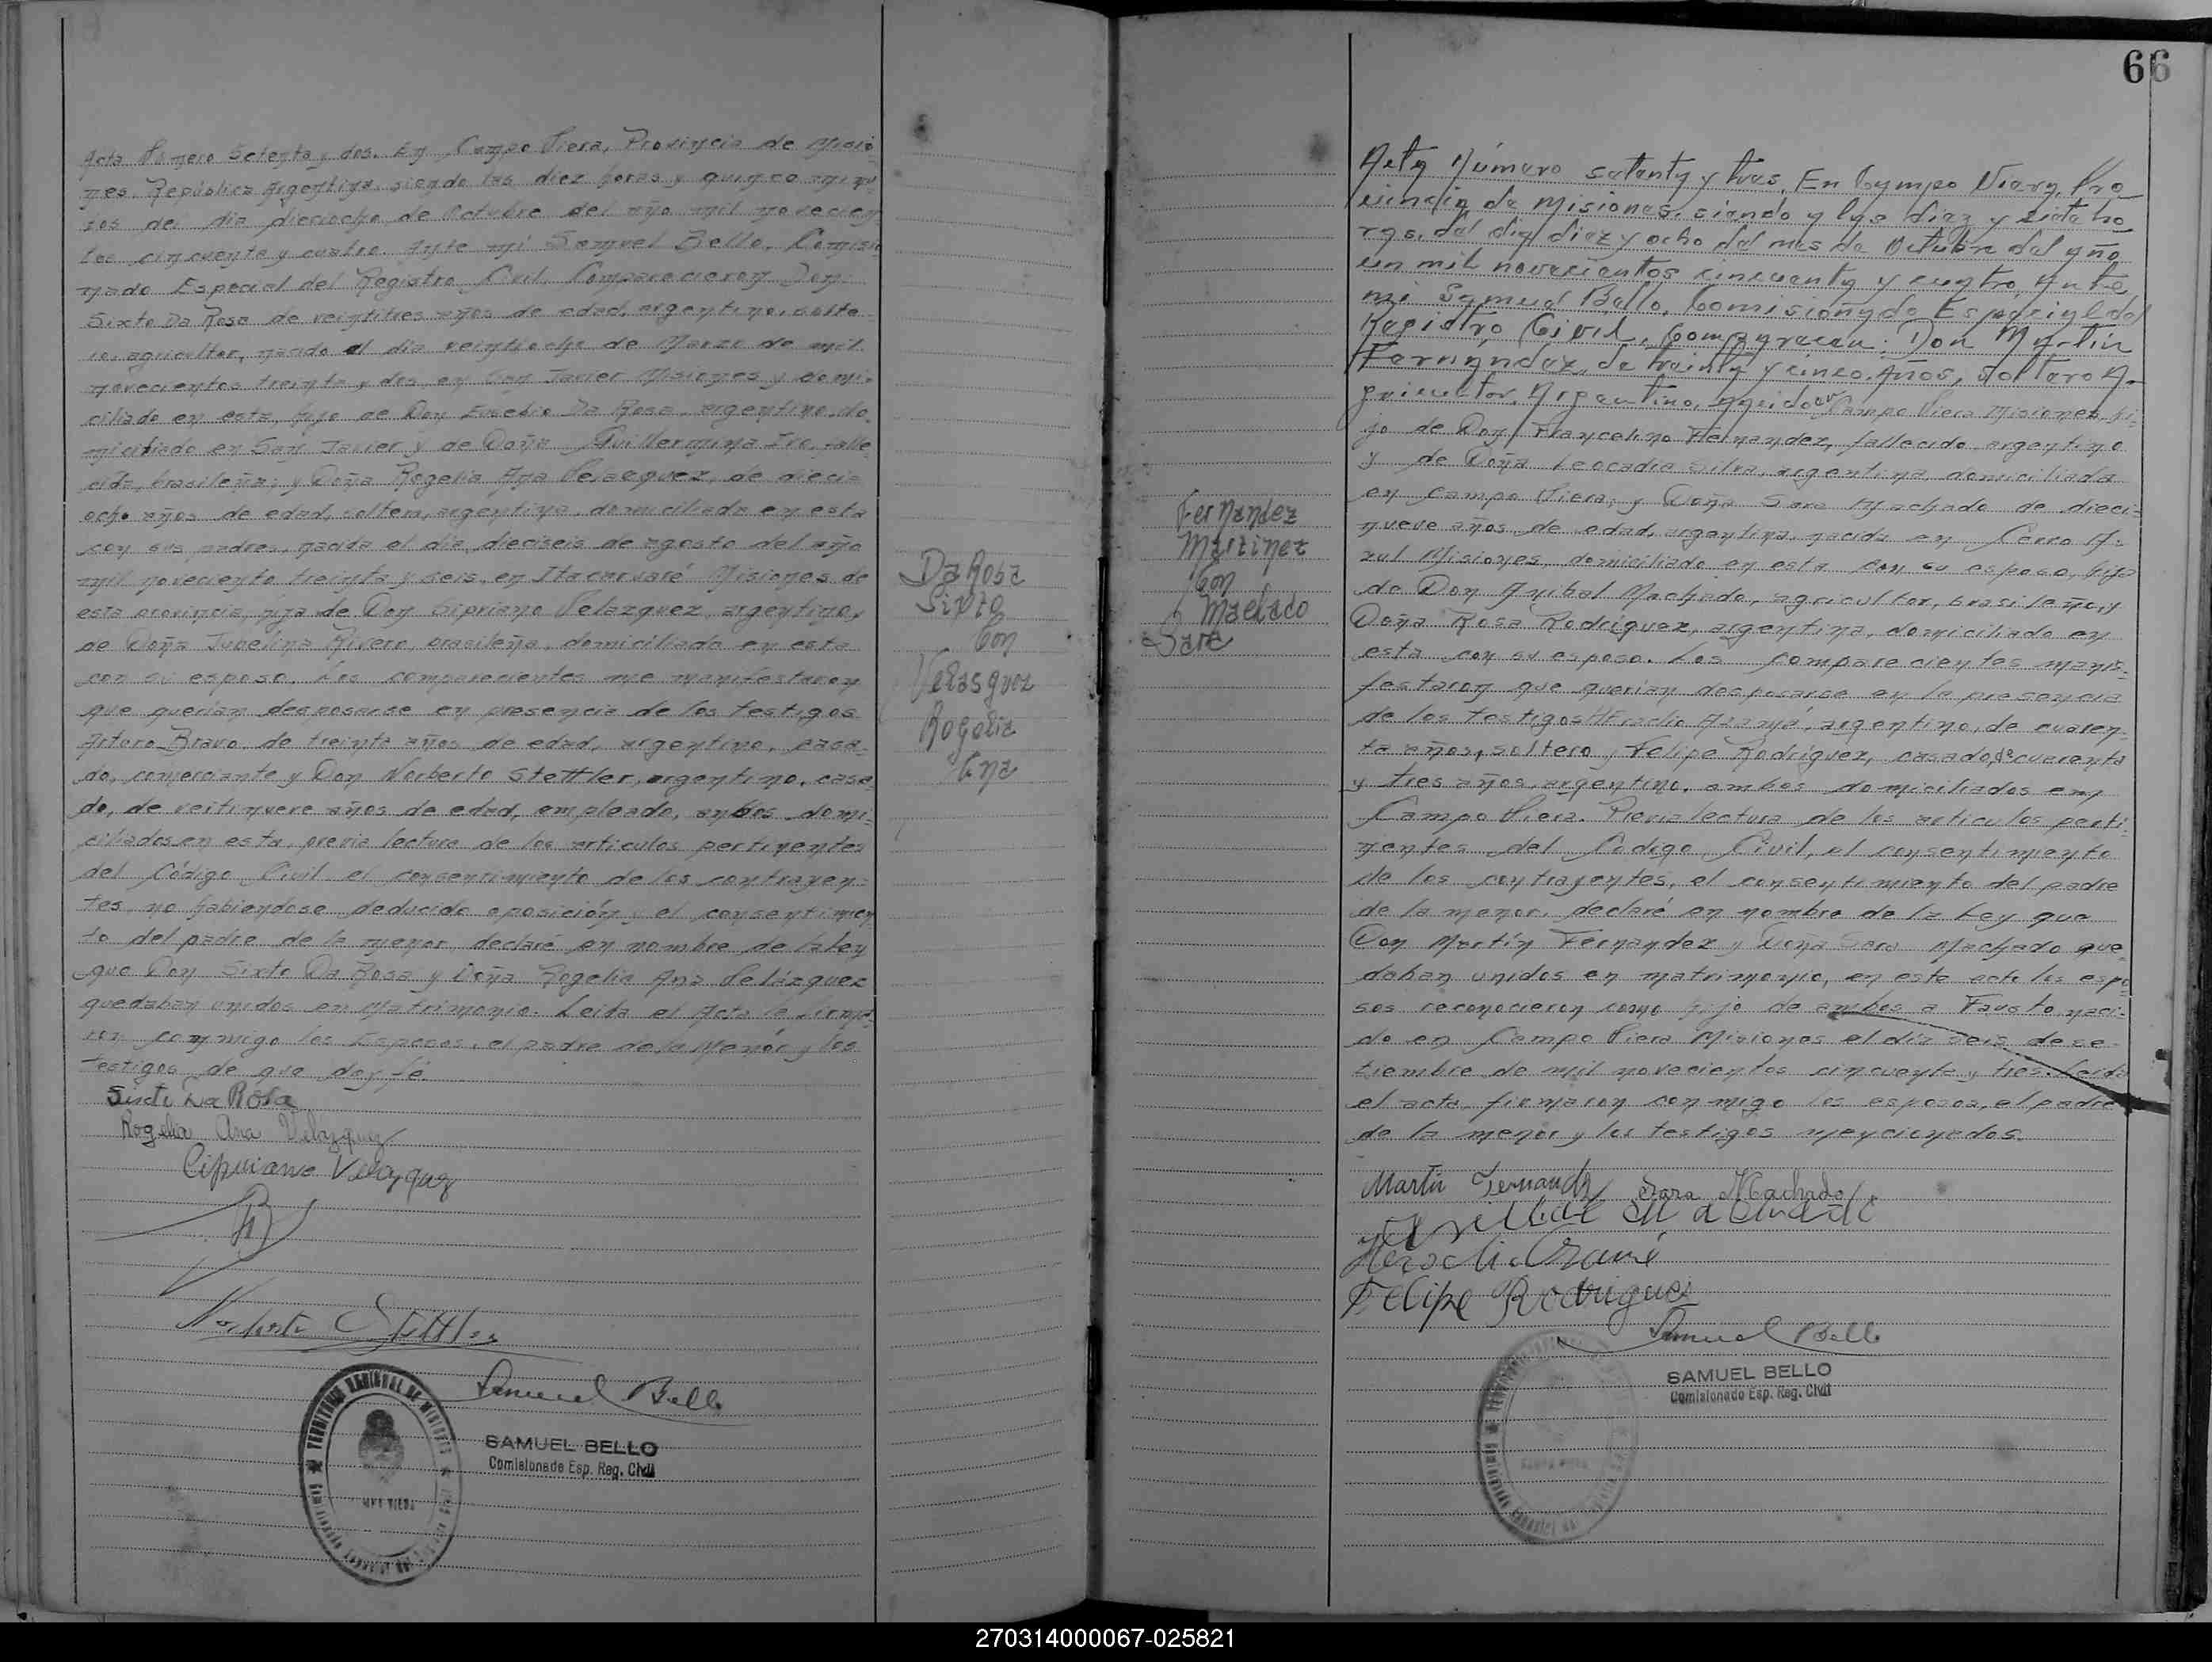 Acta Número Setenta y dos. En Campo Viera, Provincia de Misio-
nes. República Argentina, siendo las diez horas y quince minu-
tos del dia dieciocho de Octubre del año mil novecien
tos cincuenta y cuatro. Ante mi Samuel Bello, Comisio
nado Especial del Registro Civil. Comparecieron Don:
Sixto Da Rosa de veintitres años de edad, argentino, solte-
ro, agricultor, nacido el dia veintiocho de Marzo de mil
novecientos treinta y dos, en San Javier Misiones y domi-
ciliado en esta, hijo de Don Eusebio Da Rosa, argentino, do
miciliado en San Javier y de Doña Guillermina falle
cida, brasileña; y Doña Rogelia Ana Velasquez, de dieci
ocho años de edad, soltera, argentina, domiciliada en esta
con sus padres, nacida el dia dieciseis de agosto del año
mil noveciento treinta y seis, en Itacaruaré Misiones de
esta provincia, hija de Don Sipriano Velazquez, argentino,
de Doña Juvelina Rivero, brasileña, domiciliada en esta
con su esposo. Los comparecientes me manifestaron
que querian desposarse en presencia de los testigos
Arturo Bravo, de treinta años de edad, argentino, casa-
do, comerciante y Don Norberto Stettler, argentino, casa
do, de veitinueve años de edad, empleado, ambos domi-
ciliados en esta, previa lectura de los articulos pertinentes
del Código Civil el consentimiento de los contrayen-
tes, no habiendose deducido oposición y el consentimien
to del padre de la menor, declaré en nombre de la Ley
que Don Sixto Da Rosa y Doña Rogelia Ana Velázquez
quedaban unidos en Matrimonio. Leida el Acta la firma-
ron conmigo los Esposos, el padre de la Menor y los
testigos de que doy fé.
Sixto Da Rosa
Rogelia Ana Velazquez
Cipriano Velazquez
Norberto Stettler
Samuel Bello
SAMUEL BELLO
Comisionado Esp. Reg. Civil
TERRITORIO NACIONAL DE MISIONES
Da Rosa
Sixto
Con
Velasquez
Rogelia
Ana
66
Fernandez
Martinez
Con
Machado
Sara
Acta Número setenta y tres. En Campo Viera, Pro
vincia de Misiones, siendo a las diez y siete ho
ras, del dia diez y ocho del mes de Octubre del año
un mil novecientos cincuenta y cuatro, Ante
mi Samuel Bello, Comisionado Especial del
Registro Civil, Comparecen: Don Martin
Fernández, de treinta y cinco Años, soltero A-
gricultor, Argentino, nacido en Campo Viera Misiones, hi-
jo de Don Francolino Fernandez, fallecido argentino
y de Doña Leocadia Silva, argentina, domiciliada
en Campo Viera; y Doña Sara Machado de dieci-
nueve años de edad, argentina, nacida en Cerro A-
zul Misiones, domiciliado en esta con su esposo, hija
de Don Anibal Machado, agricultor, brasileño, y
Doña Rosa Rodriguez, argentina, domiciliado en
esta con su esposo. Los comparecientes manis-
festaron que querian desposarse en la presencia
de los testigos Heraclio Azamé, argentino, de cuaren-
ta años, soltero y Felipe Rodriguez, casado, de cuarenta
y tres años, argentino, ambos domiciliados en
Campo Viera. Previa lectura de los articulos perti-
nentes del Codigo Civil, el consentimiento
de los contrayentes, el consentimiento del padre
de la menor, declaré en nombre de la Ley que
Don Martín Fernandez y Doña Sara Machado que-
daban unidos en matrimonio, en este acto los espo-
sos reconocieron como hijo de ambos a Fausto naci-
do en Campo Viera Misiones el dia seis de se-
tiembre de mil novecientos cincuenta y tres. Leida
el acta firmaron conmigo los esposos, el padre
de la menor y los testigos mencionados.
Martin Fernandz Sara Machado
Felipe Rodriguez
Samuel Bello
SAMUEL BELLO
Comisionado Esp. Reg. Civil
270314000067-025821